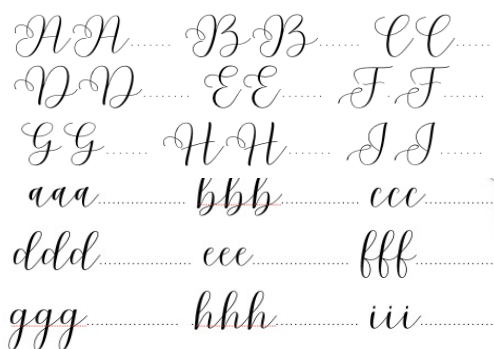 AA...... BB...... CC......
DD....... EE...... FF......
GG...... HH...... II......
aaa.................. bbb................. ccc..................
ddd.................... eee...................... fff..................
ggg...................... hhh.................. iii..................